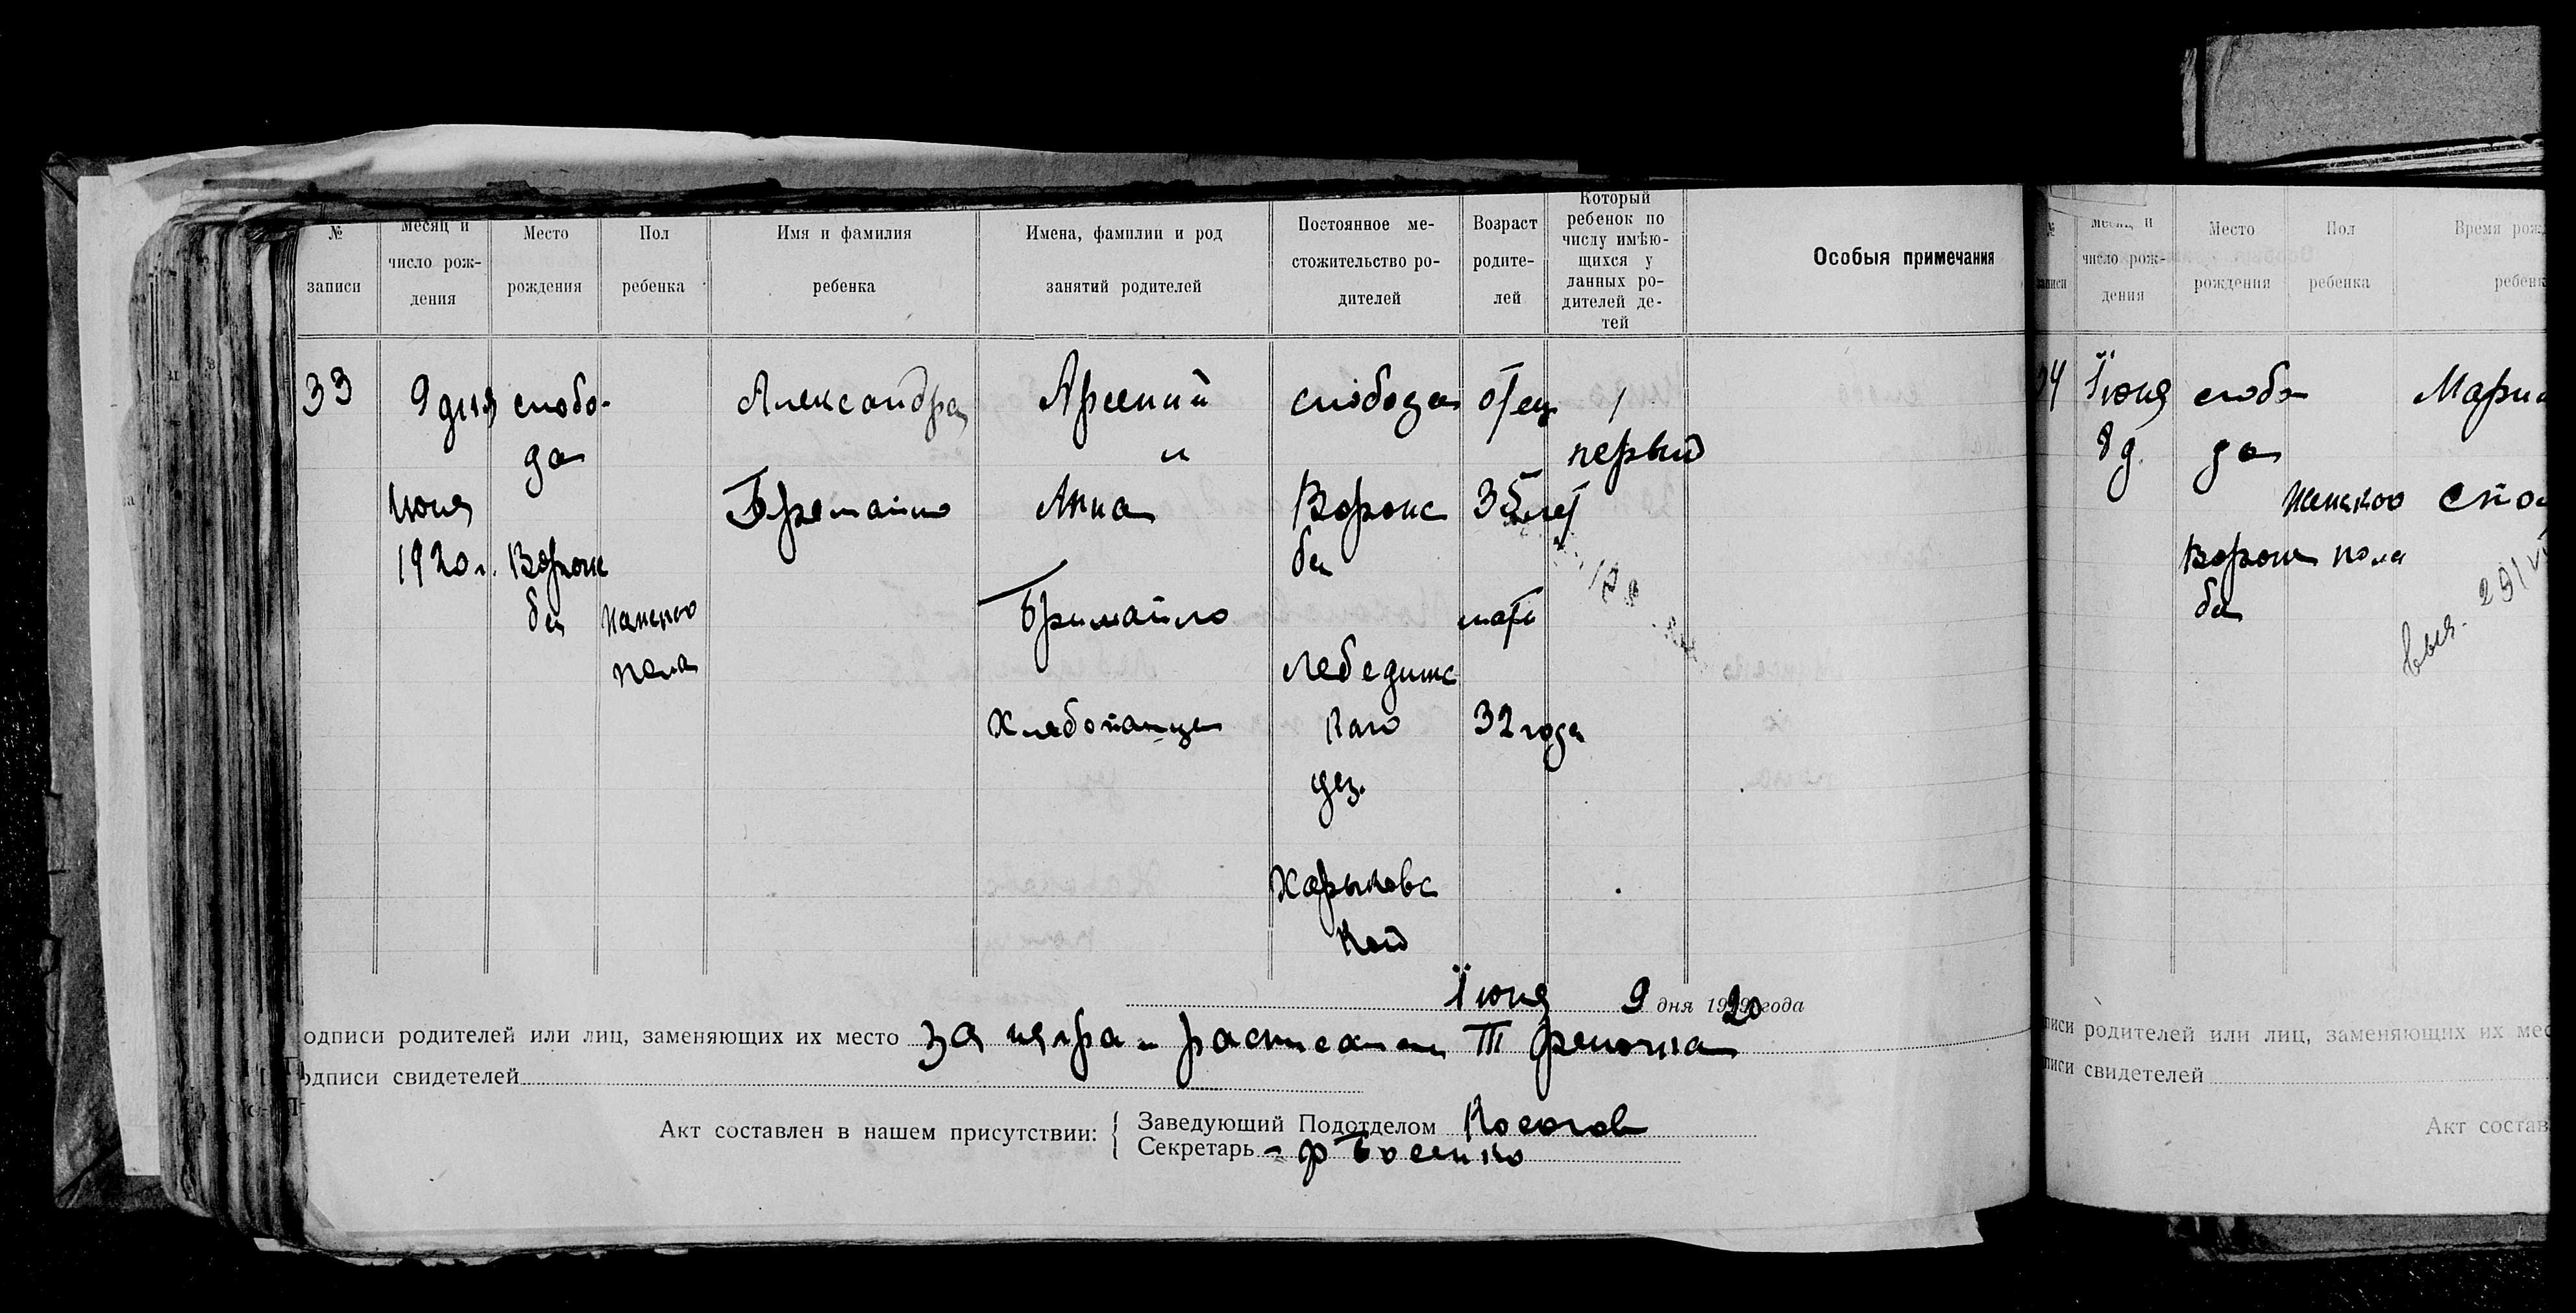 № записи
Месяц и число рож-дения
Место рождения
Пол ребенка
Имя и фамилия ребенка
Имена, фамилии и род занятий родителей
Постоянное ме-стожительство ро-дителей
Возраст родите-лей
Который ребенок по числу имѣю-щихся у данных ро-дителей де-тей
Особыя примечания
33
9 дня
Июня
1920 г.
слобо-
да
Ворож
ба
Женского
пола
Александра
Арсений
и
Анна
Хлебопашцы
слобода
Ворож
ба
Лебединс
каго
уез.
Харьковс
кой
отец
35 лет
мать
32 года
1
первый
Июня 9 дня 1920 года
одписи родителей или лиц, заменяющих их место
одписи свидетелей
Акт составлен в нашем присутствии:
Заведующий Подотделом
Секретарь
записи
Месяц и
число рож-
дения
Место
рождения
Пол
ребенка
Время рож
ребенк
Июня
8 д.
слобо
да
Ворож
ба
Женского
пола
Мари
29/VI
писи родителей или лиц, заменяющих их мес
писи свидетелей
Акт состав